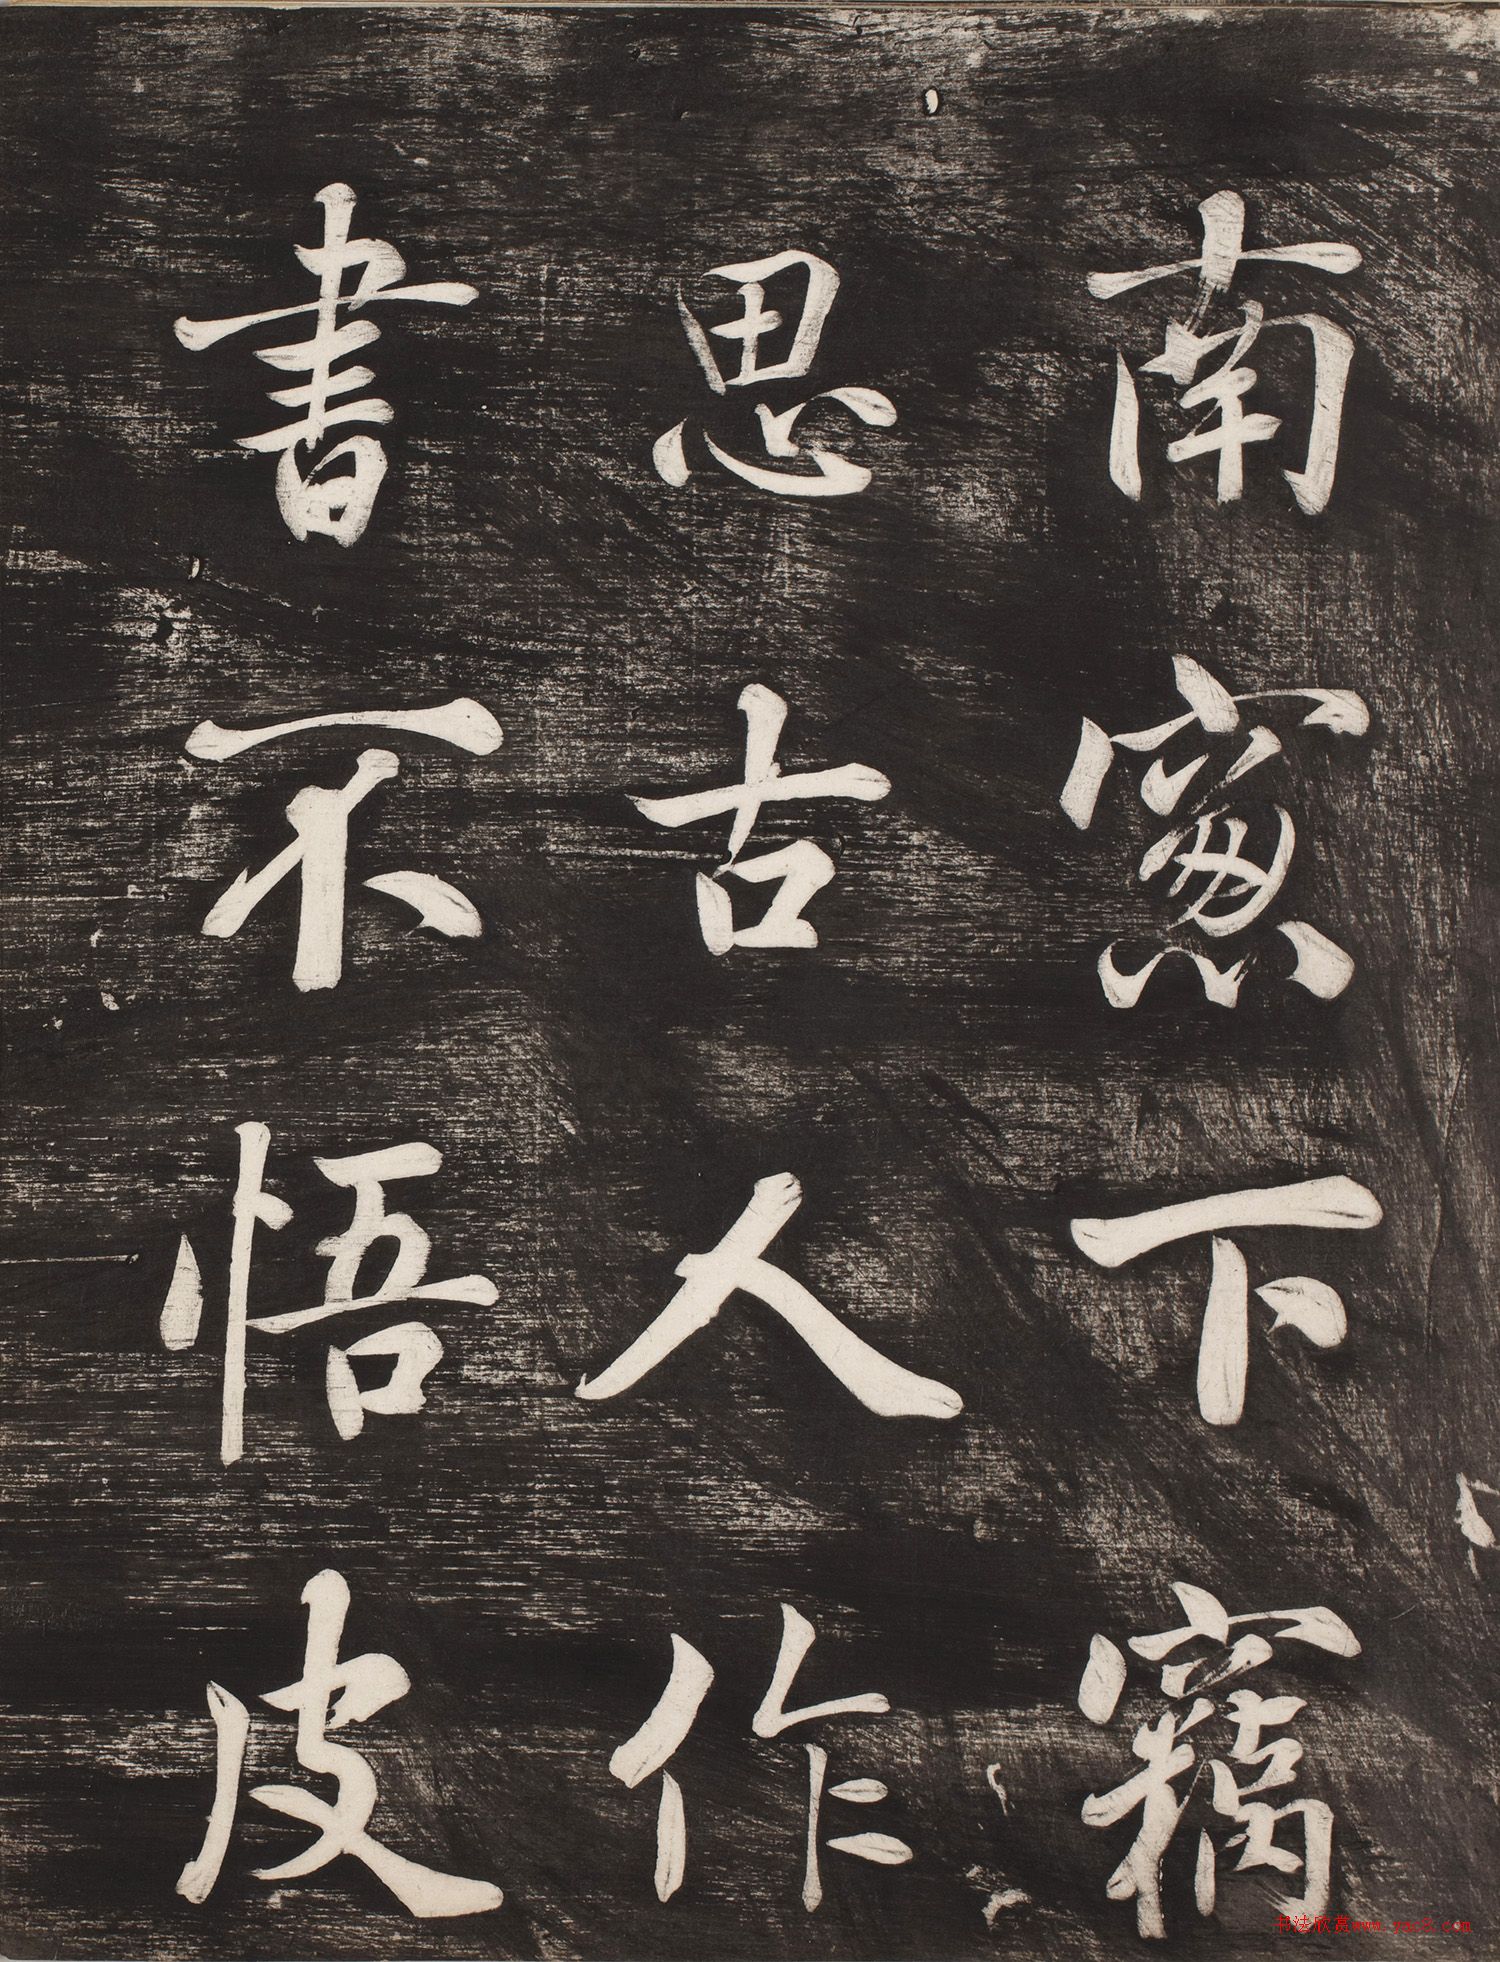 南窻下竊
思古人作
書不悟皮
书法欣赏www.yac8.com